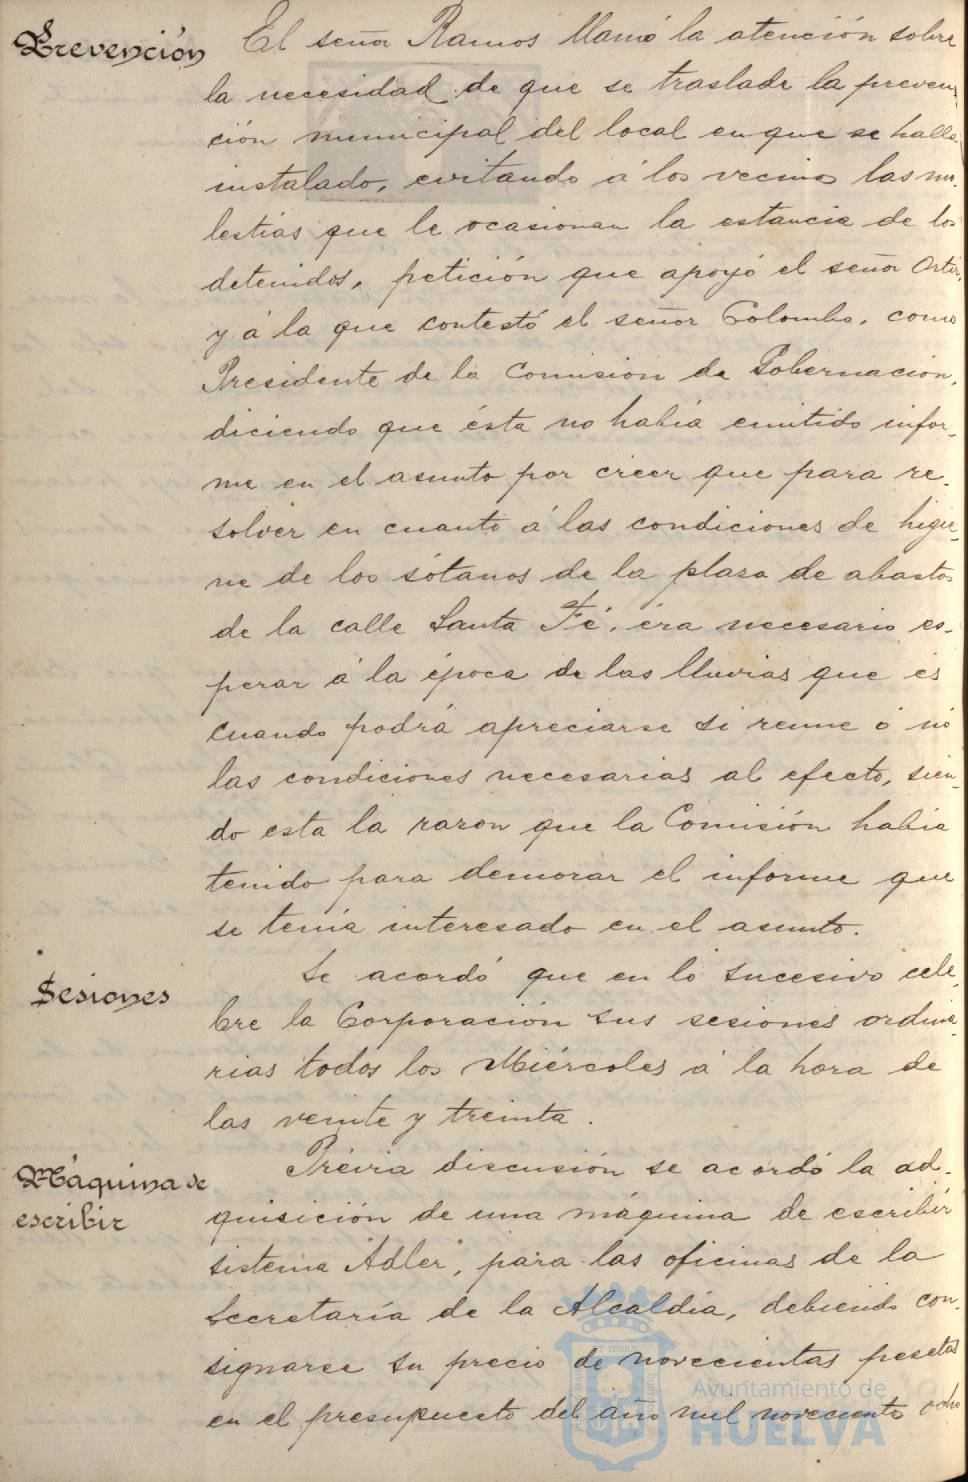 Prevención
El señor Ramos llamó la atención sobre
la necesidad de que se traslade la preven-
ción municipal del local en que se halla
instalado, evitando á los vecinos las mo-
lestias que le ocasionan la estancia de los
detenidos, petición que apoyó el señor Ortiz,
y á la que contestó el señor Colombo, como
Presidente de la Comision de Gobernacion,
diciendo que ésta no había emitido infor-
me en el asunto por creer que para re-
solver en cuanto á las condiciones de higie-
ne de los sótanos de la plaza de abastos
de la calle Santa Fé, era necesario es-
perar á la época de las lluvias que es
cuando podrá apreciarse si reune ó nó
las condiciones necesarias al efecto, sien-
do esta la razon que la Comisión había
tenido para demorar el informe que
se tenía interesado en el asunto.
Sesiones
Se acordó que en lo sucesivo cele-
bre la Corporación sus sesiones ordina-
rias todos los Miércoles á la hora de
las veinte y treinta.
Máquina de
escribir
Prévia discusión se acordó la ad-
quisición de una máquina de escribir
sistema "Adler", para las oficinas de la
Secretaría de la Alcaldía, debiendo con-
signarse su precio de novecientas pesetas
en el presupuesto del año mil novecientos ocho
Ayuntamiento de
HUELVA